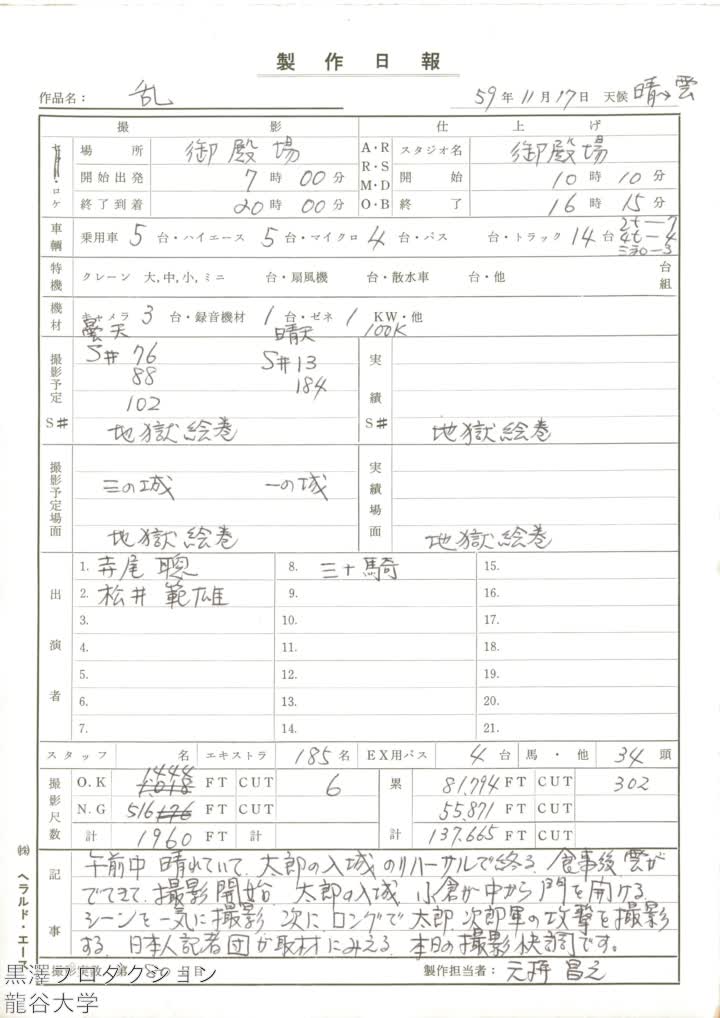 製作日報
作品名： 乱 59年11月17日 天候 晴→雲
撮影 仕上げ
ロケ 場所 御殿場 A・R スタジオ名 御殿場
開始出発 7時00分 R・S M・D 開始 10時10分
終了到着 20時00分 O・B 終了 16時15分
車輌 乗用車 5台・ハイエース 5台・マイクロ 4台・バス 台・トラック 14台 2t—7 4t—4
特機 クレーン 大,中,小,ミニ 台・扇風機 台・散水車 台・他 台組
機材 キャメラ 3台・録音機材 1台・ゼネ 1 KW・他 100K
曇天 晴天
撮影予定 S# S# 76 S# 13 実績 S#
88 184
102
地獄絵巻 地獄絵巻
撮影予定場面 三の城 一の城 実績場面
地獄絵巻 地獄絵巻
出演者 1. 寺尾聰 8. 三十騎 15.
2. 松井範雄 9. 16.
3. 10. 17.
4. 11. 18.
5. 12. 19.
6. 13. 20.
7. 14. 21.
スタッフ 名 エキストラ 185名 EX用バス 4台 馬・他 34頭
撮影尺数 O.K 1444 FT CUT 6 累計 81,794 FT CUT 302
N.G 516 FT CUT 55,871 FT CUT
計 1960 FT 計 137,665 FT CUT
記事 午前中 晴れていて、太郎の入城のリハーサルで終る。食事後 雲が
でてきて、撮影開始 太郎の入城、小倉が中から門を開ける
シーンを一気に撮影 次に ロングで 太郎、次郎軍の攻撃を撮影
する。日本人記者団が取材にみえる。本日の撮影快調です。
撮影実数 第 日目 製作担当者：
㈱ヘラルド・エース
黒澤プロダクション
龍谷大学